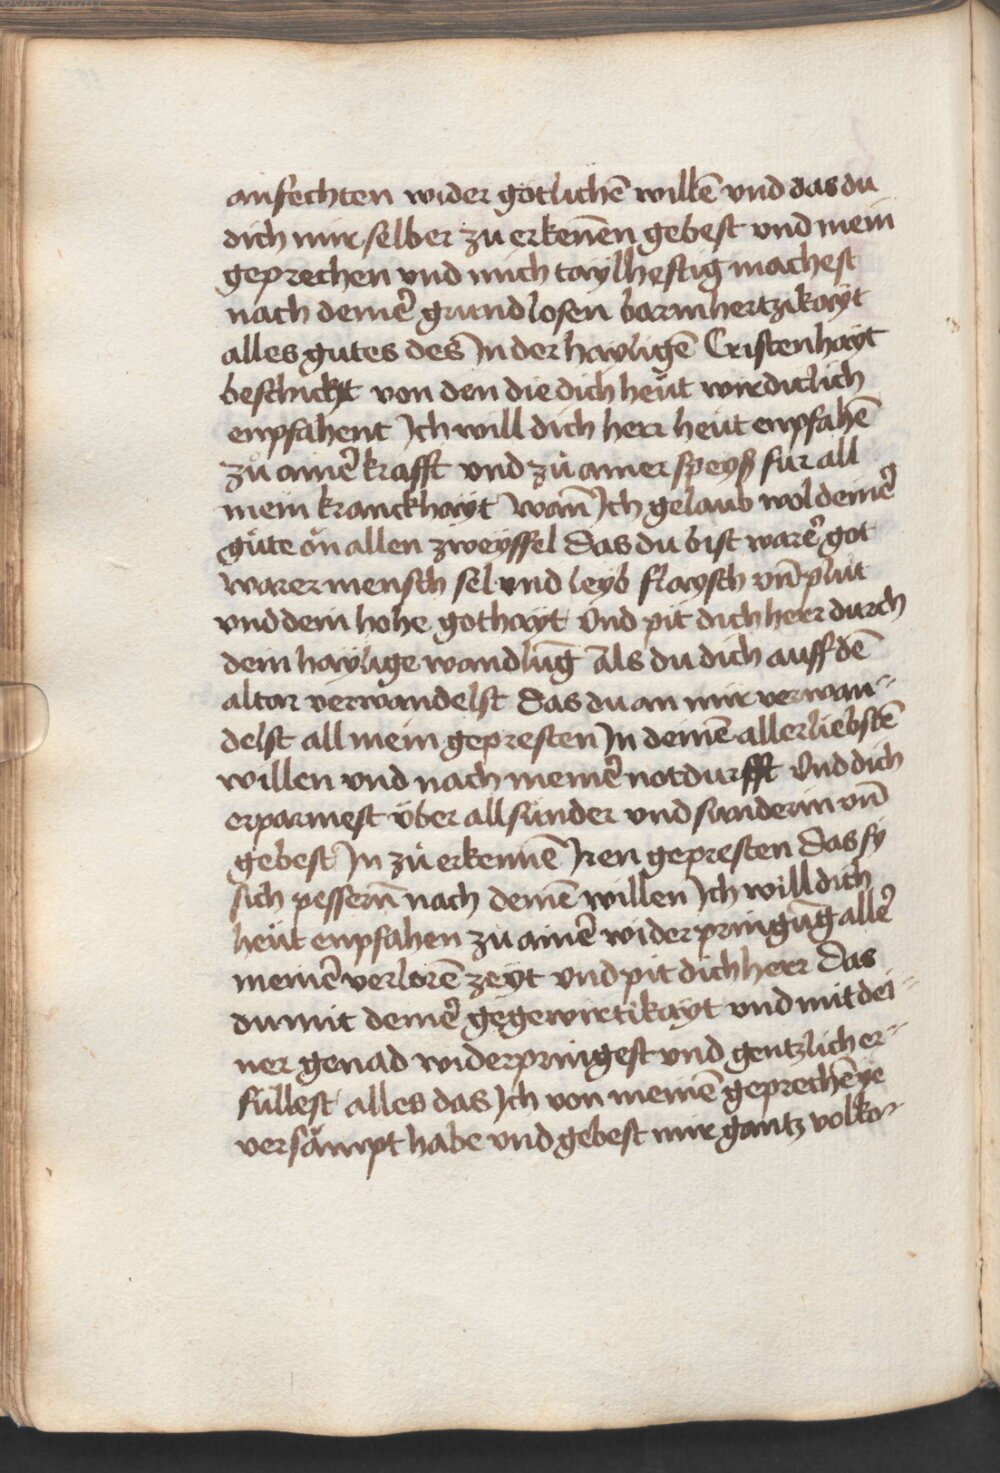 anfechten wider götlichē willē vnd das du
dich mir selber zu erkenēn gebest vnd mein
geprechen vnd mich taylhefftig machest
nach deinē grundlosen barmhertzikayt
alles gutes des In der hayligē Cristenhayt
beschicht von den die dich heüt wirdiclich
enpfahent Ich will dich herr heüt enpfahē
zů ainē krafft vnd zů ainer speyß für all
mein kranckhayt Wañ Ich gelaub wol deinē
güte ön allen zweyffel Das du bist warē got
warer mensch sel vnd leyb flaysch vñ plůt
vnd dein hohe gothayt Vnd pit dich herr durch
dein haylige wandlūg Als du dich auff dē
altar verwandelst Das du an mir verwan-
delst all mein gepresten In deinē allerliebstē
willen vnd nach meinē notdurfft Vnd dich
erparmest über all sünder vnd sünderin vñ
gebest In zů erkennē Iren gepresten Das sy
sich pessern̄ nach deinē willen Ich will dich
heüt enpfahen zů ainē widerpringūg allē
meinē verlorē zeyt vnd pit dich herr Das
du mit deinē gegewirtikayt vnd mit dei-
ner genad widerpringest vnd gentzlich er-
füllest alles das Ich von meinē geprechē ye
versämpt habe vnd gebest mir gantz volko-